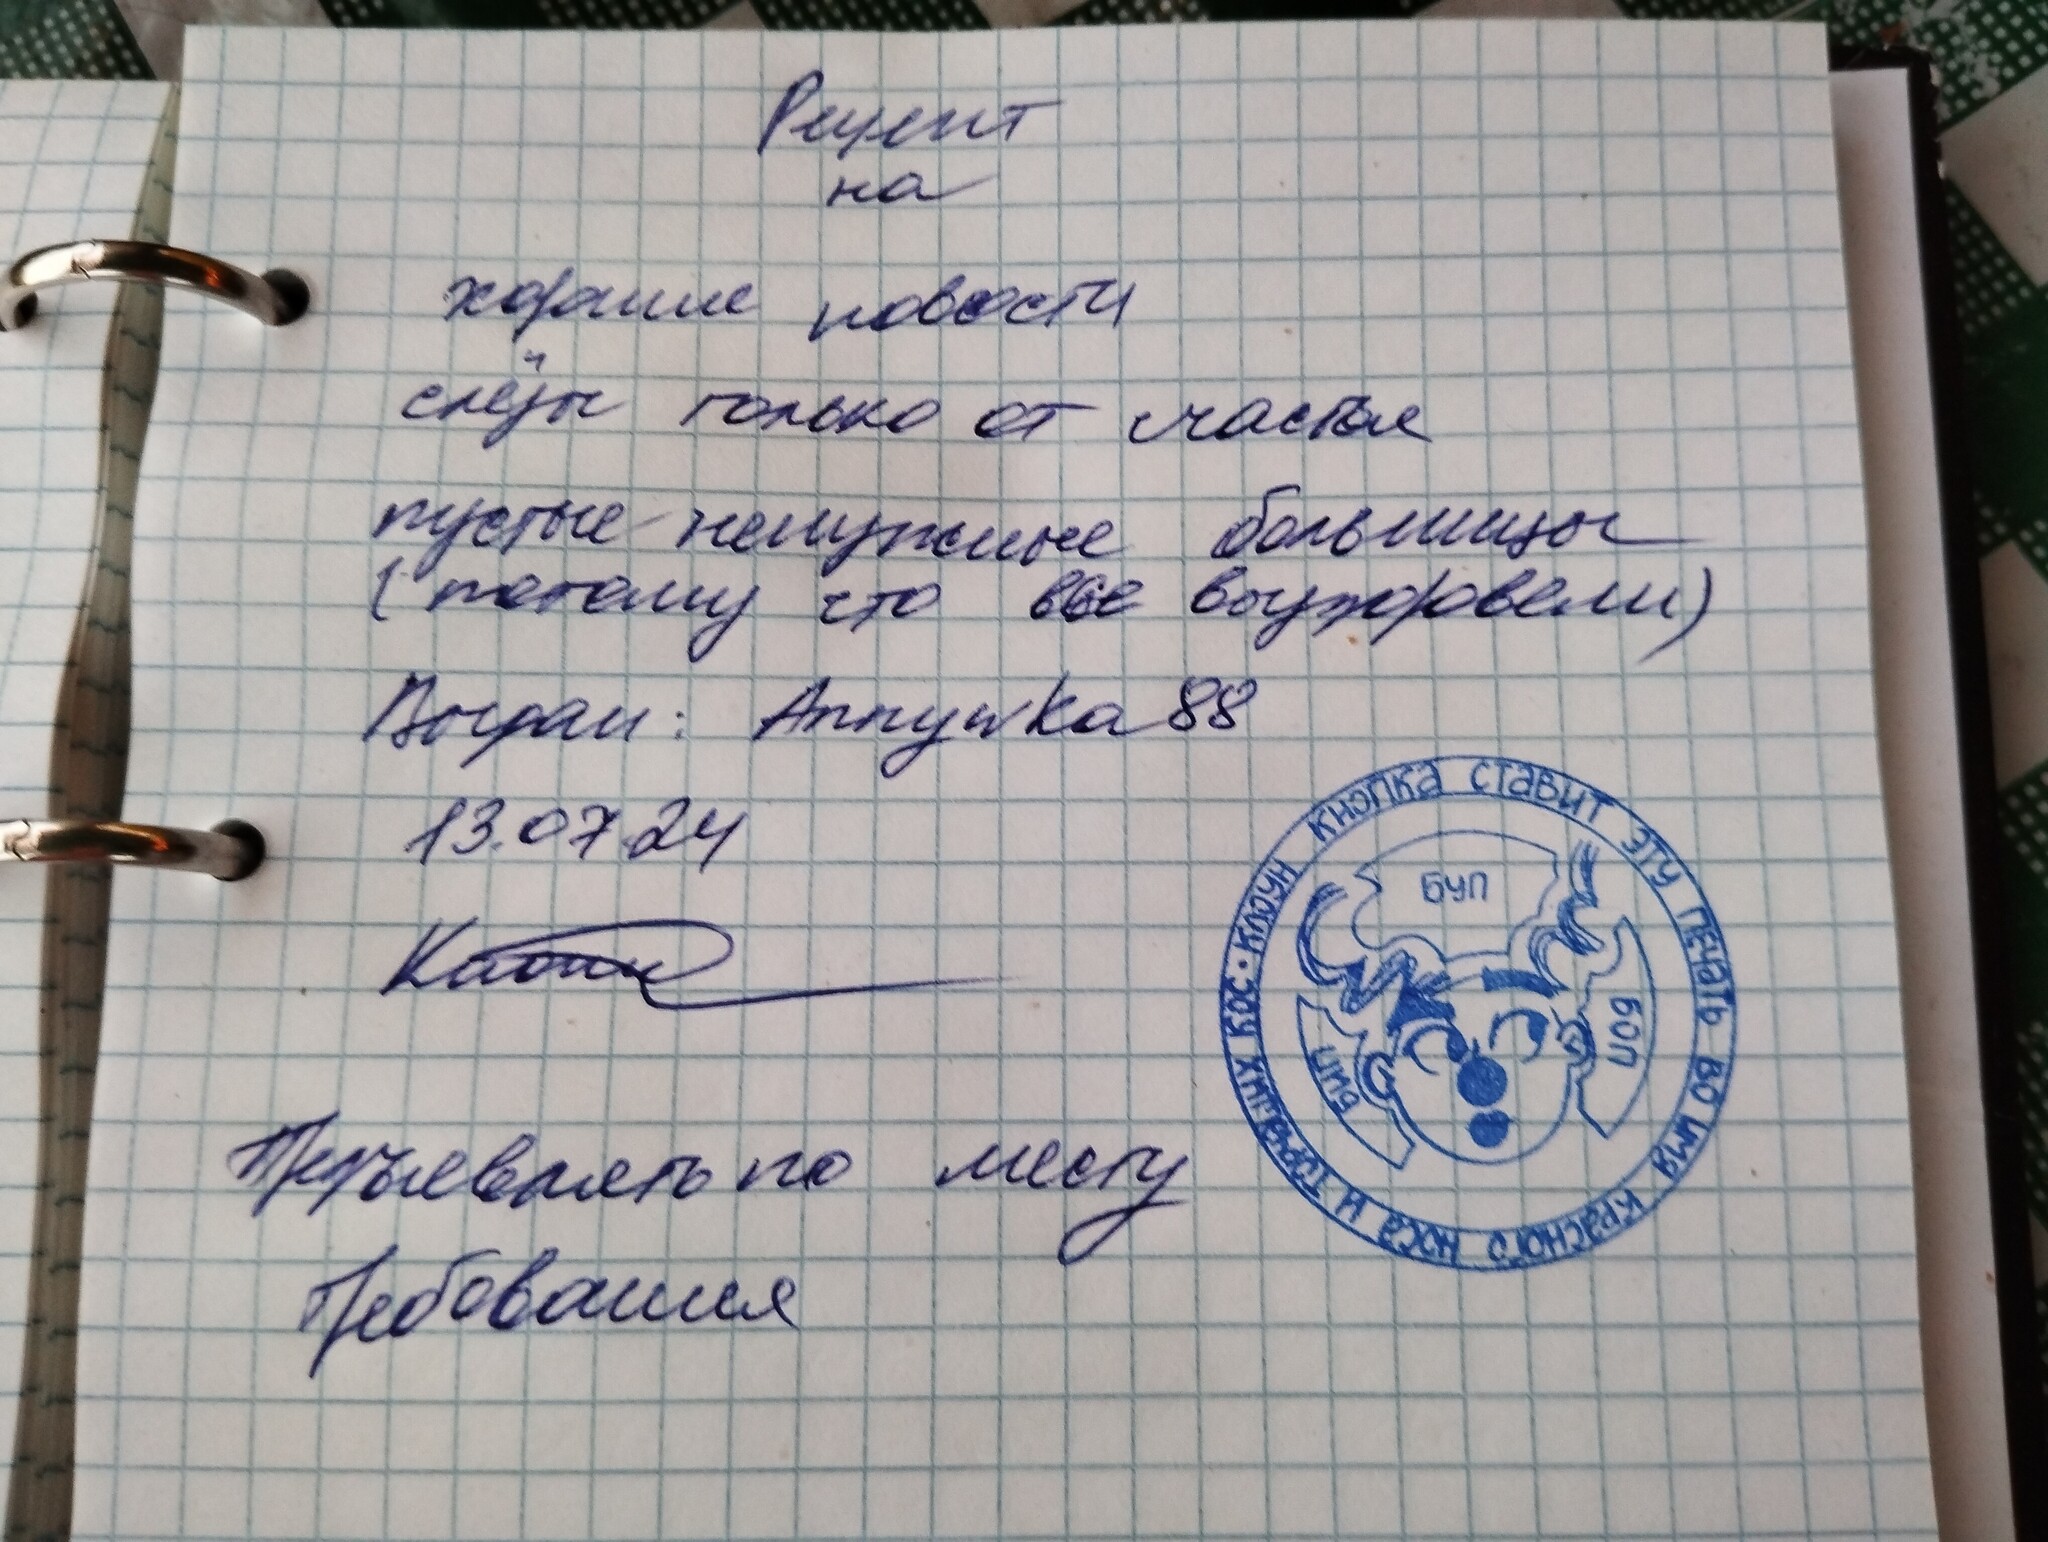 Рецепт
на
хорошие новости
слёзы только от счастья
пустые ненужные больницы
(потому что все выздоровели)
Выдан: Аппушка 88
13.07.24
Предъявлять по месту
Требования
КЛОУН КНОПКА СТАВИТ ЭТУ ПЕЧАТЬ ВО ИМЯ КРАСНОГО НОСА И ТОРЧАЩИХ КОС •
БУП
БОП
БИП